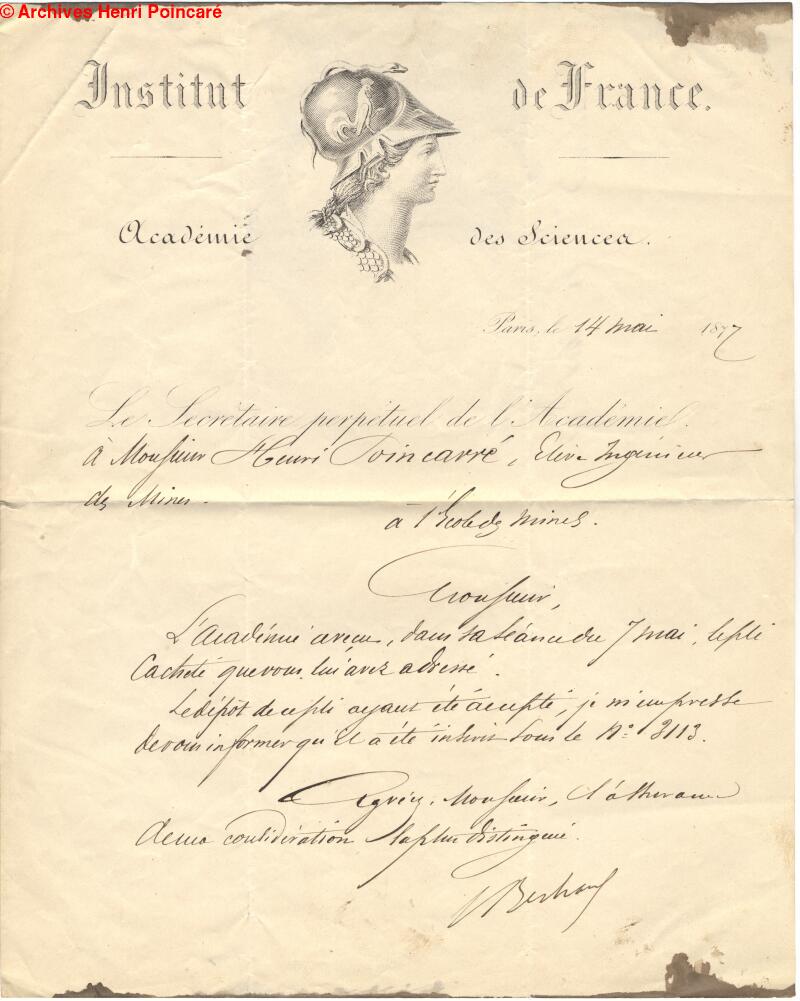 © Archives Henri Poincaré
Institut de France.
Académie des Sciences.
Paris, le 14 mai 1877
Le Secrétaire perpétuel de l'Académie
à Monsieur Henri Poincarré, Elève Ingénieur
des Mines.
à l'Ecole des mines.
Monsieur,
L'académie a reçu, dans sa séance du 7 mai, le pli
cacheté que vous lui avez adressé.
Le dépôt de ce pli ayant été accepté, je m'empresse
de vous informer qu'il a été inscrit sous le No. 3113.
Agréez, Monsieur, l'assurance
de ma considération la plus distinguée.
J Bertrand